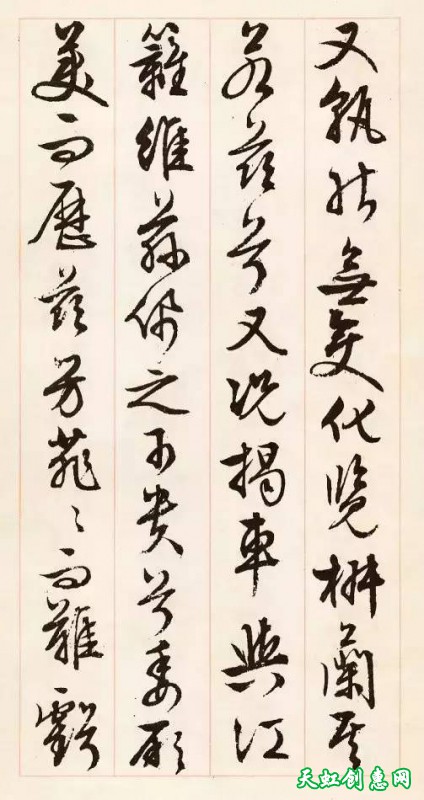 又孰能無變化覽椒蘭其
若茲兮又況揭車與江
籬維茲佩之可貴兮委厥
美而歷茲芳菲々而難虧
天虹创惠网